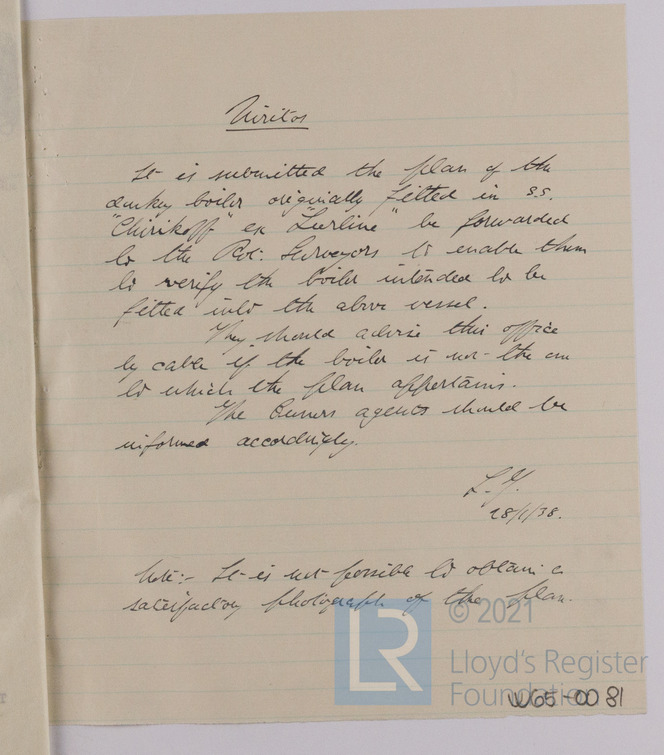 Niritos
It is submitted the plan of the
donkey boiler originally fitted in s.s.
"Chirikoff" ex "Lurline" be forwarded
to the Surveyors to enable them
to verify the boiler intended to be
fitted into the above vessel.
They should advise this office
by cable if the boiler is not the one
to which the plan appertains.
The Owners agents should be
informed accordingly.
28/1/38.
Note:- It is not possible to obtain a
satisfactory photograph of the plan.
LR
© 2021
Lloyd's Register
Foundation
W65-0081